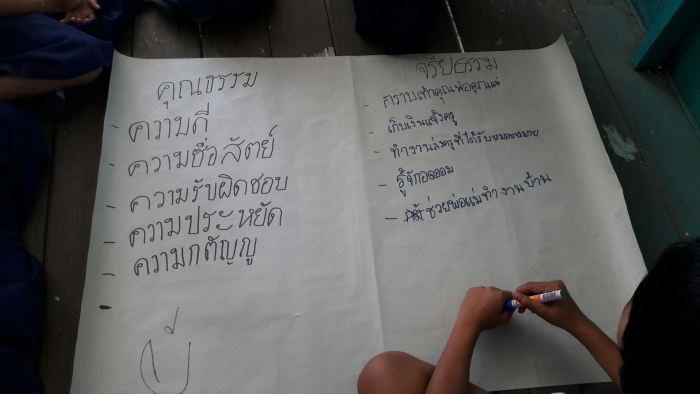 คุณธรรม
- ความดี
- ความซื่อสัตย์
- ความรับผิดชอบ
- ความประหยัด
- ความกตัญญู
-
ป
จริยธรรม
- กราบเท้าคุณพ่อคุณแม่
- เก็บเงินแจ้งครู
- ทำงานที่ได้รับหมอบหมาย
- รู้จักอดออม
- ช่วยพ่อแม่ทำงานบ้าน